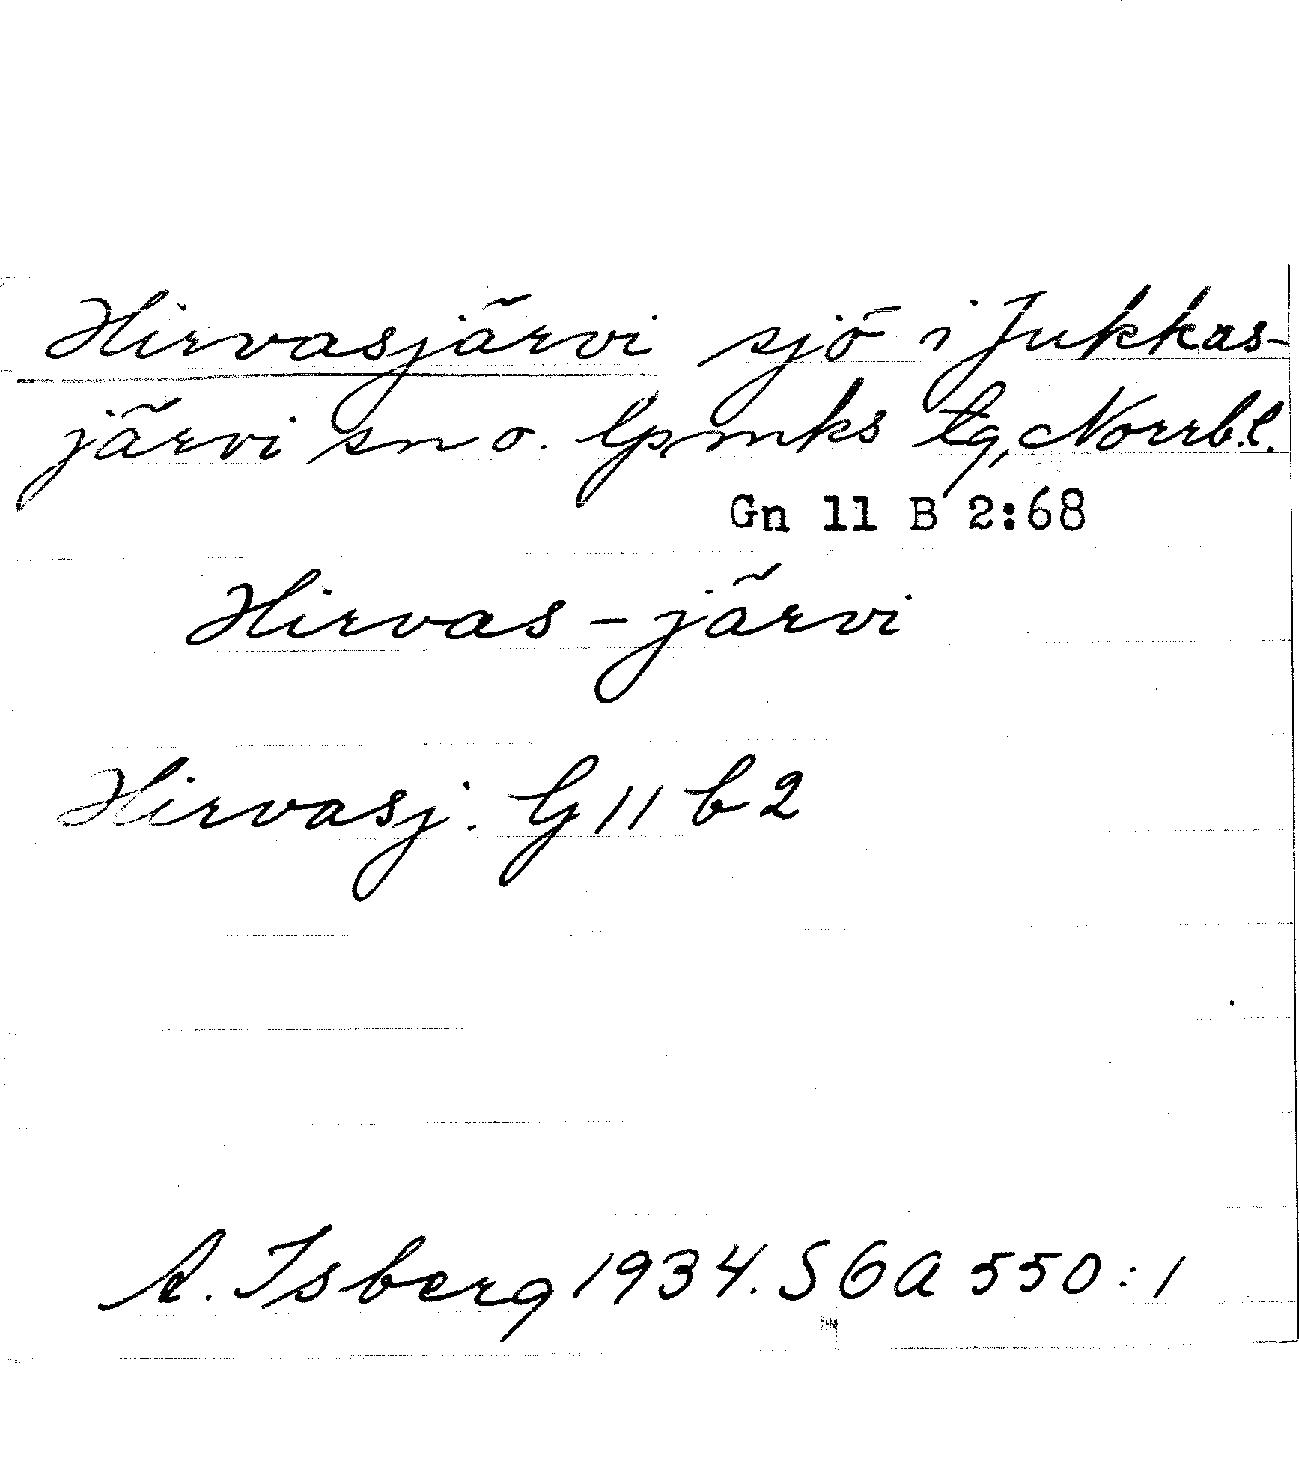 Hirvasjärvi sjö i Jukkas-
järvi sn o. lpmks tg, Norrb.l.
Gn 11 B 2:68
Hirvas-järvi
Hirvasj. G 11 b 2
A. Isberg 1934. SOA 550:1